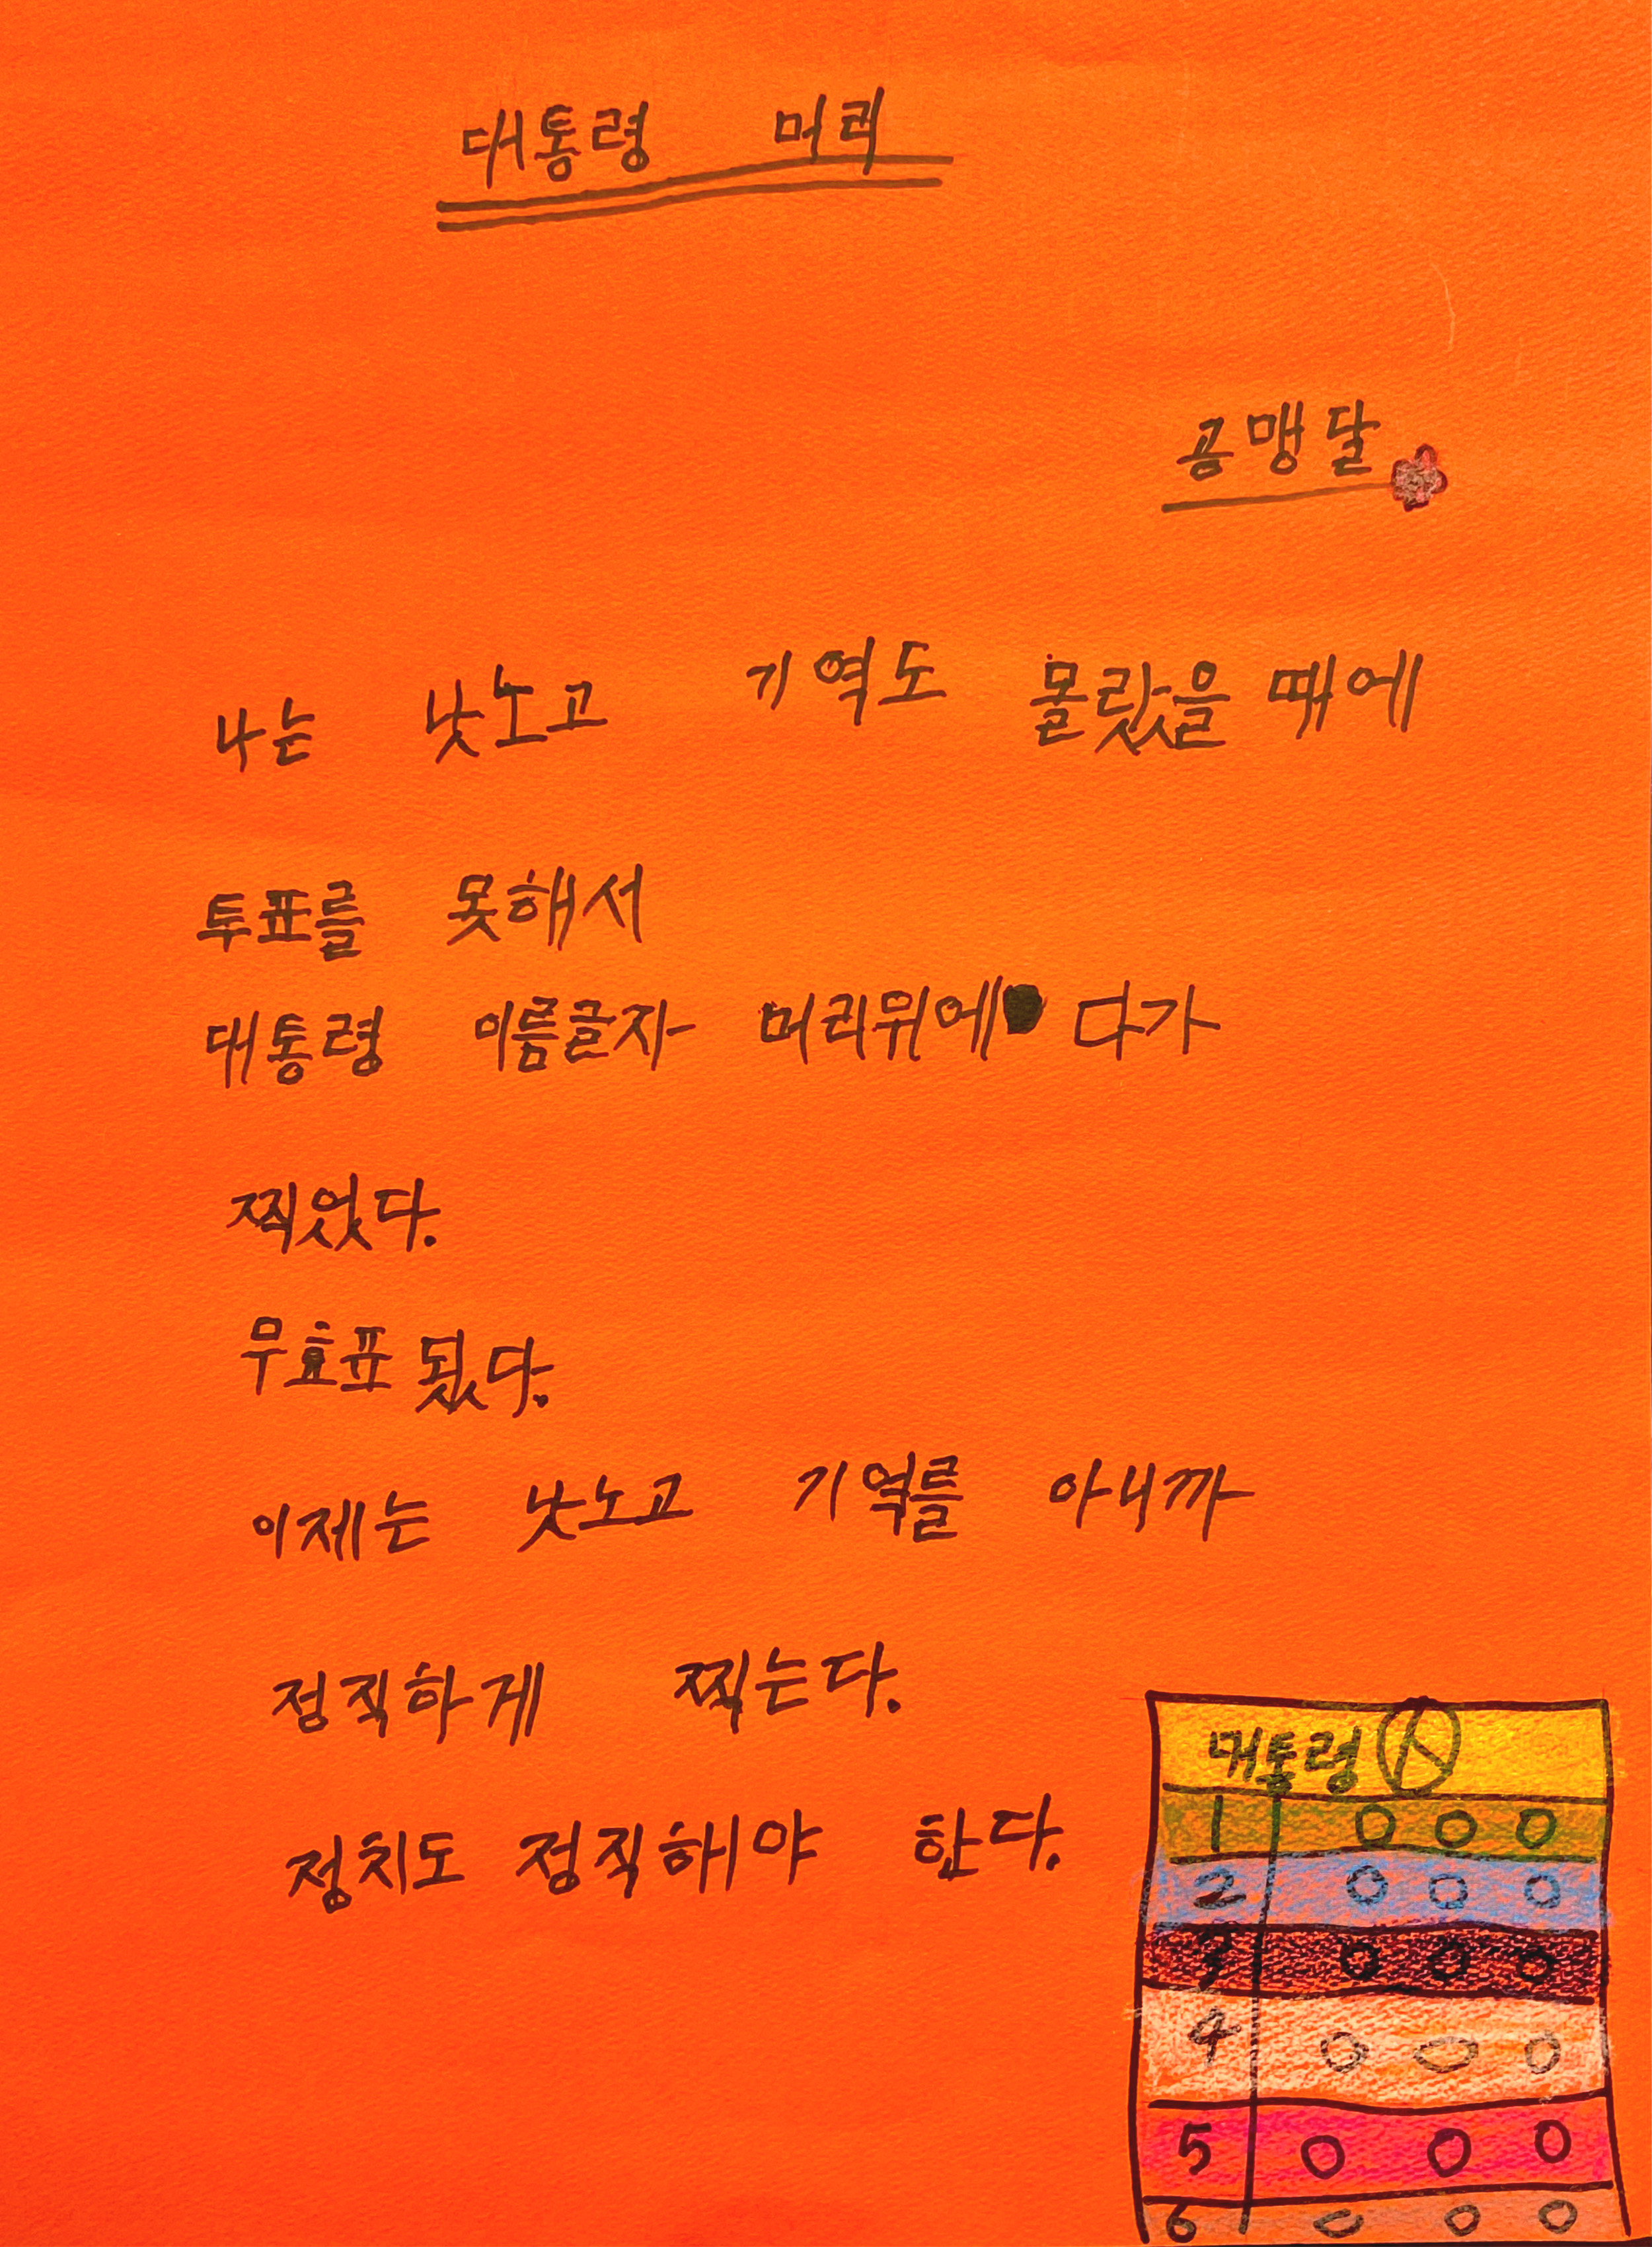 대통령 머리
공맹달
나는 낫노고 기역도 몰랐을 때에
투표를 못해서
대통령 이름글자 머리위에 다가
찍었다.
무효표 됬다.
이제는 낫노고 기역를 아니까
정직하게 찍는다.
정치도 정직해야 한다.
대통령
1 O O O
2 O O O
3 O O O
4 O O O
5 O O O
6 O O O